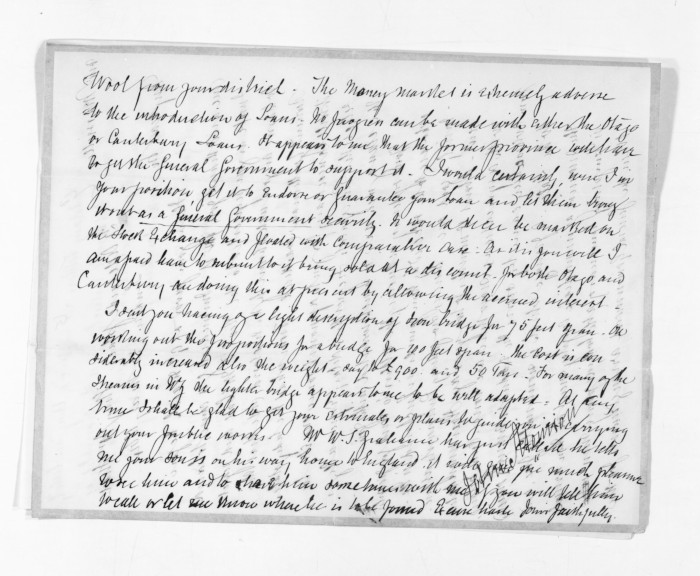 Wool from your district - The Money market is extremely adverse
to the introduction of Loans - No progress can be made with either the Otago
or Canterbury Loans. It appears to me that the former province will have
to get the General Government to support it. I would certainly, were I in
Your position get it to Endorse or Guarantee your Loan and let them bring
it out as a General Government Security. It would then be marked on
the Stock Exchange and floated with comparative ease. As it is you will I
am afraid have to submit to it being sold at a discount. for both Otago and
Canterbury are doing this at present by allowing the accrued interest.
I sent you tracing of a light description of Iron bridge for 75 feet span. On
working out the proportions for a bridge for 100 feet span. The Cost is con-
siderably increased also the weight - say to £900. and 50 Tons. For many of the
Streams in the lighter bridge appears to me to be well adapted. At any
time I shall be glad to get your Estimates or plans to guide you in carrying
out your public works. Mr W. S. has just he tells
me your son is on his way home to England. it will give me much pleasure
to see him and to have him some time with me if you will tell him
to call or let me know where he is to be found Yours faithfully
Morrison